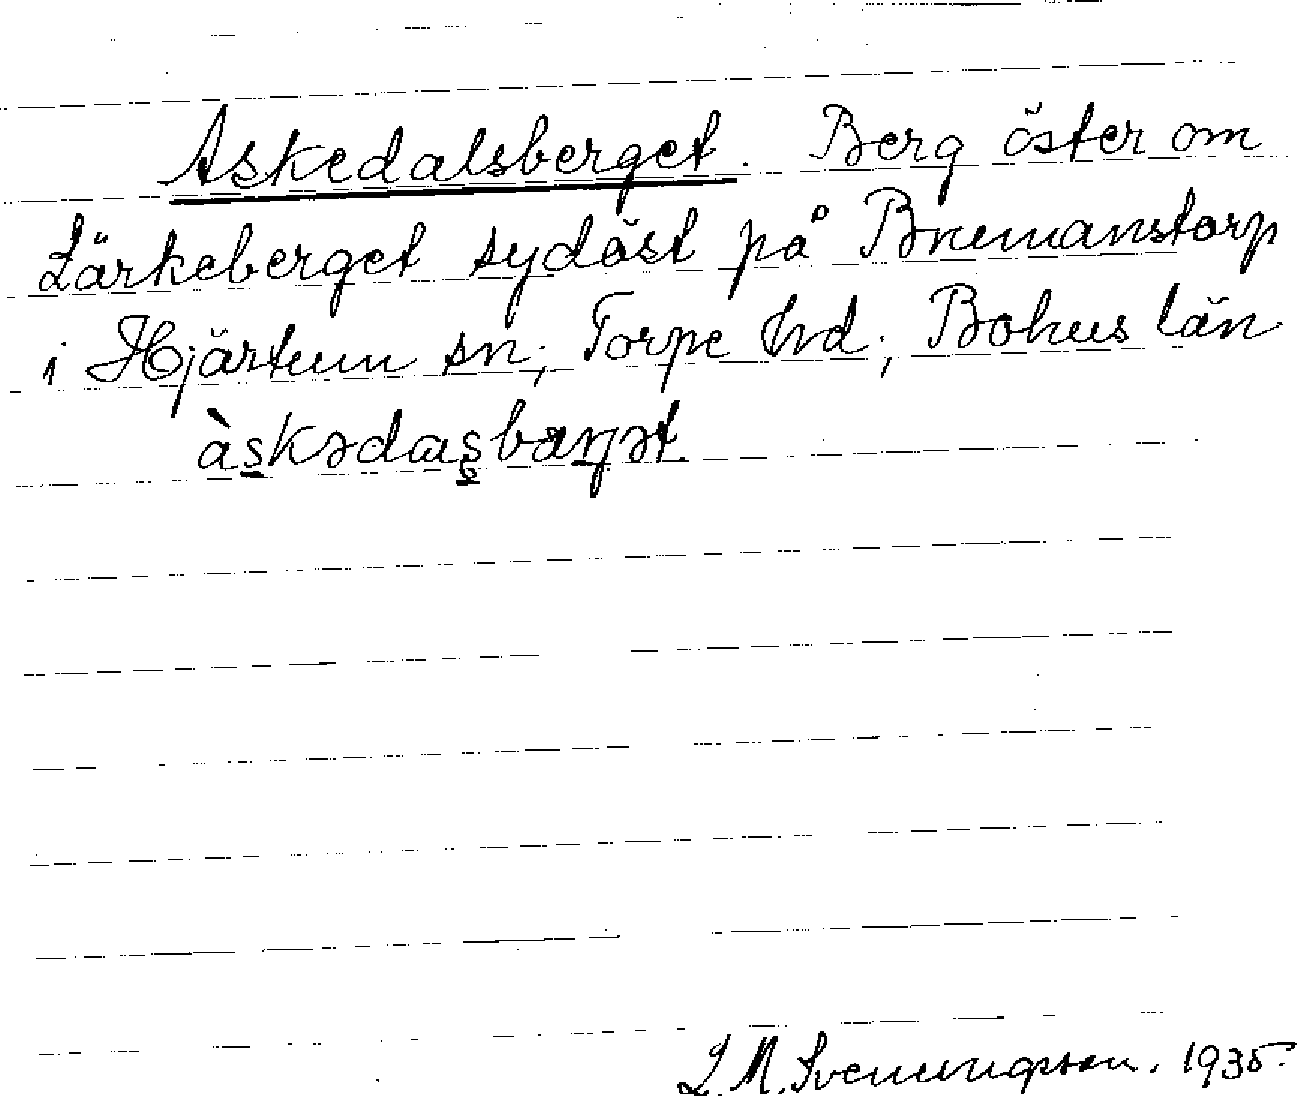 Askedalsberget. Berg öster om
Lärkeberget sydöst på Bremanstorp
i Hjärtum sn; Torpe hrd; Bohus län
àskədaʂbærjət.
L. M. Svenungsson. 1935.